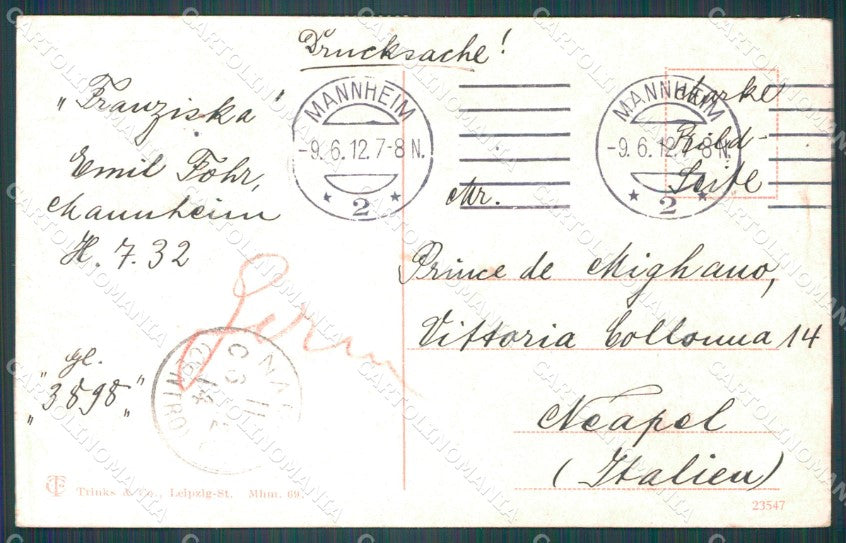 Drucksache!
"Franziska"
Emil Fohr,
Mannheim
H. 7. 32
"gl.
"3898"
MANNHEIM
-9.6.12.7-8 N.
* 2 *
MANNHEIM
-9.6.12.7-8 N.
* 2 *
Marke
Bild-
Seite
Mr.
Prince de Mighano,
Vittoria Collonna 14
Neapel
(Italien)
Trinks & Co., Leipzig-St. Mhm. 69.
23547
CARTOLINOMANIA